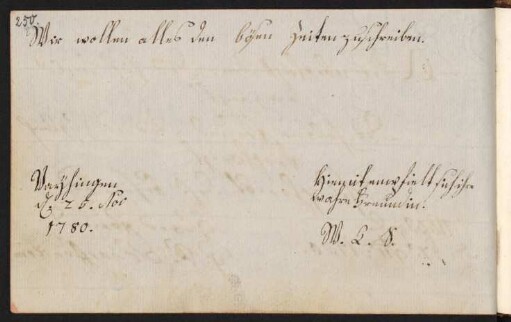 250.
Wir wollen alles den bösen Zeiten zuschreiben.
Vayhingen
d. 26. Nov
1780.
Hiemit empfielt sich ihre
wahre Freundin.
W. C. S.